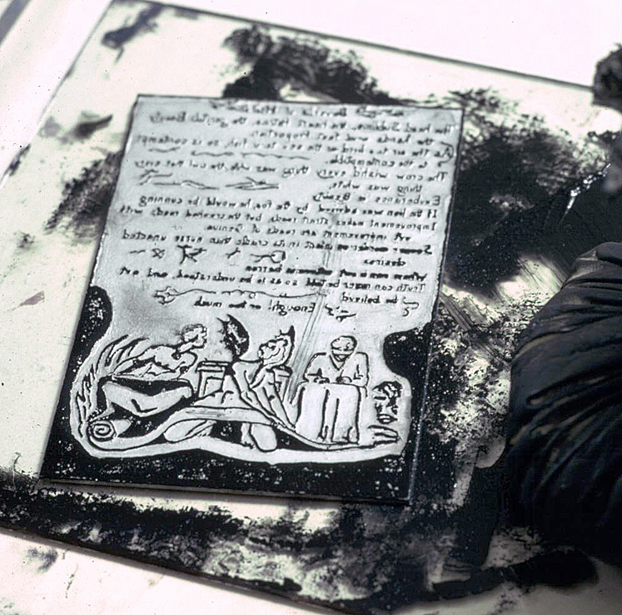 Proverbs of Hell
The head Sublime, the heart Pathos, the genitals Beauty
the hands and feet Proportion.
As the air to a bird or the sea to a fish, so is contempt
to the contemptible.
The crow wish'd every thing was the owl that every
thing was white.
Exuberance is Beauty.
If the lion was advised by the fox, he would be cunning
Improvement makes strait roads, but the crooked roads with
out improvement are roads of Genius.
Sooner murder an infant in its cradle than nurse unacted
desires
Where man is not nature is barren
Truth can never be told so as to be understood, and not
be believ'd.
Enough! or Too much